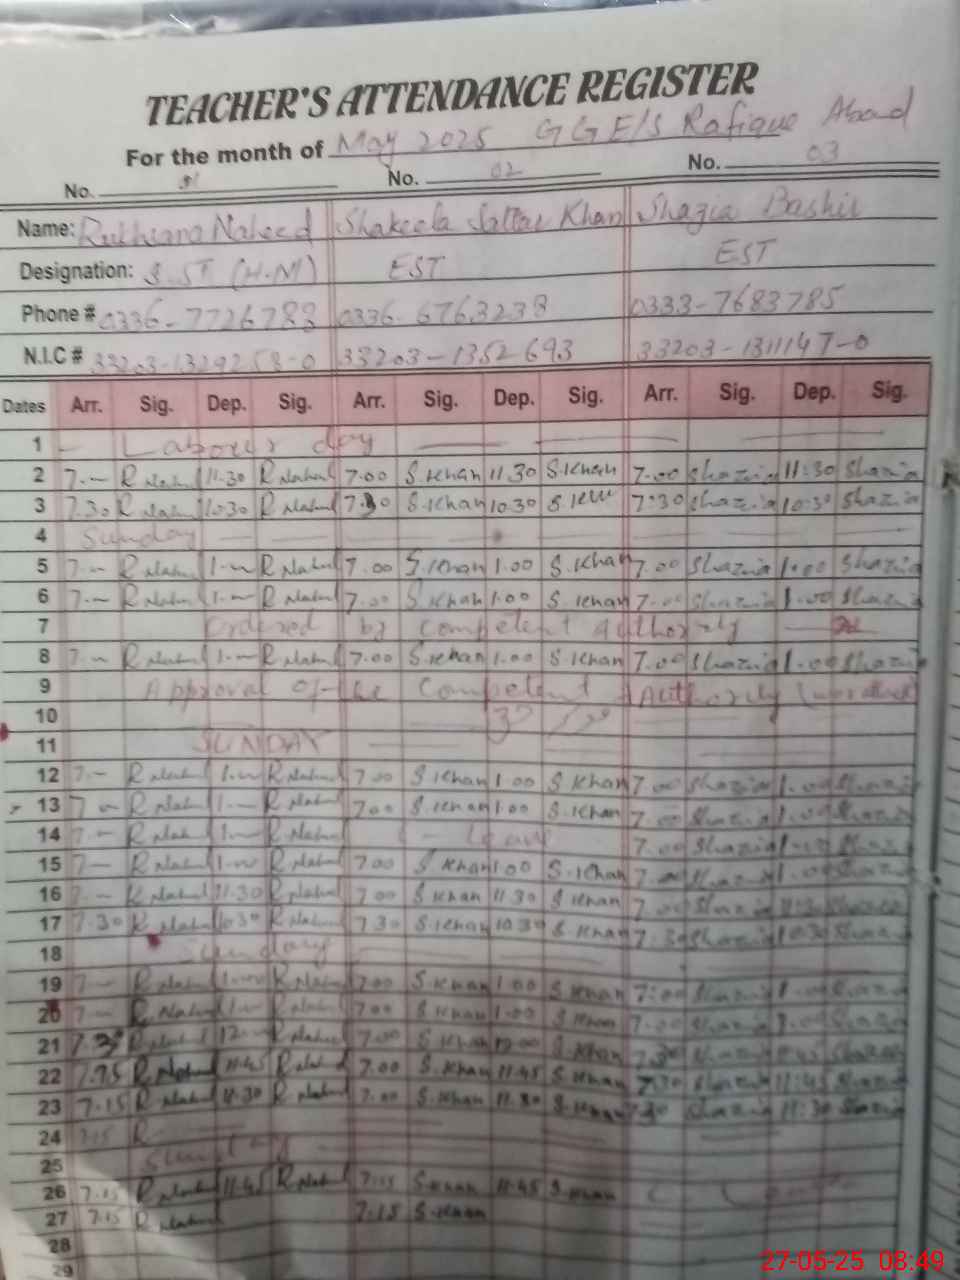 TEACHER'S ATTENDANCE REGISTER
For the month of May 2025 GGE/S Rafique Abad
No. 01 No. 02 No. 03
Name: Rukhsana Naheed Shakeela Sattar Khan Shazia Bashir
Designation: S.ST (H.M) EST EST
Phone # 0336-7726783 0336-6763238 0333-7683785
N.I.C # 33203-1329253-0 33203-1352693 33203-1311147-0
Dates Arr. Sig. Dep. Sig. Arr. Sig. Dep. Sig. Arr. Sig. Dep. Sig.
1 Labour day
2 7.— R Nahed 11.30 R Nahed 7.00 S.Khan 11.30 S.Khan 7.00 Shazia 11:30 Shazia
3 7.30 R Nahed 10.30 R Nahed 7.30 S.Khan 10.30 7:30 Shazia 10:30 Shazia
4 Sunday
5 7.— R Nahed 1.— R Nahed 7.00 S.Khan 1.00 S.Khan 7.00 Shazia 1.00 Shazia
6 7.— R Nahed 1.— R Nahed 7.00 S.Khan 1.00 S.Khan 7.00 Shazia 1.00 Shazia
7 Ordered by competent Authority
8 7.— R Nahed 1.— R Nahed 7.00 S.Khan 1.00 S.Khan 7.00 Shazia 1.00 Shazia
9 Approval of the Competent Authority
10
11 SUNDAY
12 7.— R Nahed 1.— R Nahed 7.00 S.Khan 1.00 S.Khan 7.00 Shazia 1.00 Shazia
13 7.— R Nahed 1.— R Nahed 7.00 S.Khan 1.00 S.Khan 7.00 Shazia 1.00 Shazia
14 7.— R Nahed 1.— R Nahed Leave 7.00 Shazia
15 7.— R Nahed 1.— R Nahed 7.00 S.Khan 1.00 S.Khan 7.00 Shazia 1.00 Shazia
16 7.— R Nahed 11.30 R Nahed 7.00 S.Khan 11.30 S.Khan 7.00 Shazia 11:30 Shazia
17 7.30 R Nahed 10.30 R Nahed 7.30 S.Khan 10.30 S.Khan 7:30 Shazia 10:30 Shazia
18 Sunday
19 7.— R Nahed 1.— R Nahed 7.00 S.Khan 1.00 S.Khan 7:00 Shazia 1.00 Shazia
20 7.— R Nahed 1.— R Nahed 7.00 S.Khan 1.00 S.Khan 7.00 Shazia 1.00 Shazia
21 7.30 R Nahed 12.— R Nahed 7.00 S.Khan S.Khan 7.30 Shazia 11:45 Shazia
22 R Nahed 11.45 R Nahed 7.00 S.Khan 11.45 S.Khan 7.30 Shazia 11:45 Shazia
23 7.15 R Nahed 11.30 R Nahed 7.00 S.Khan 11.30 S.Khan 7.30 Shazia 11:30 Shazia
24 7.15 R
25 Sunday
26 7.15 R Nahed 11.45 R Nahed 7.15 S.Khan 11.45 S.Khan
27 7.15 R Nahed 7.15 S.Khan
28
29
27-05-25 08:49